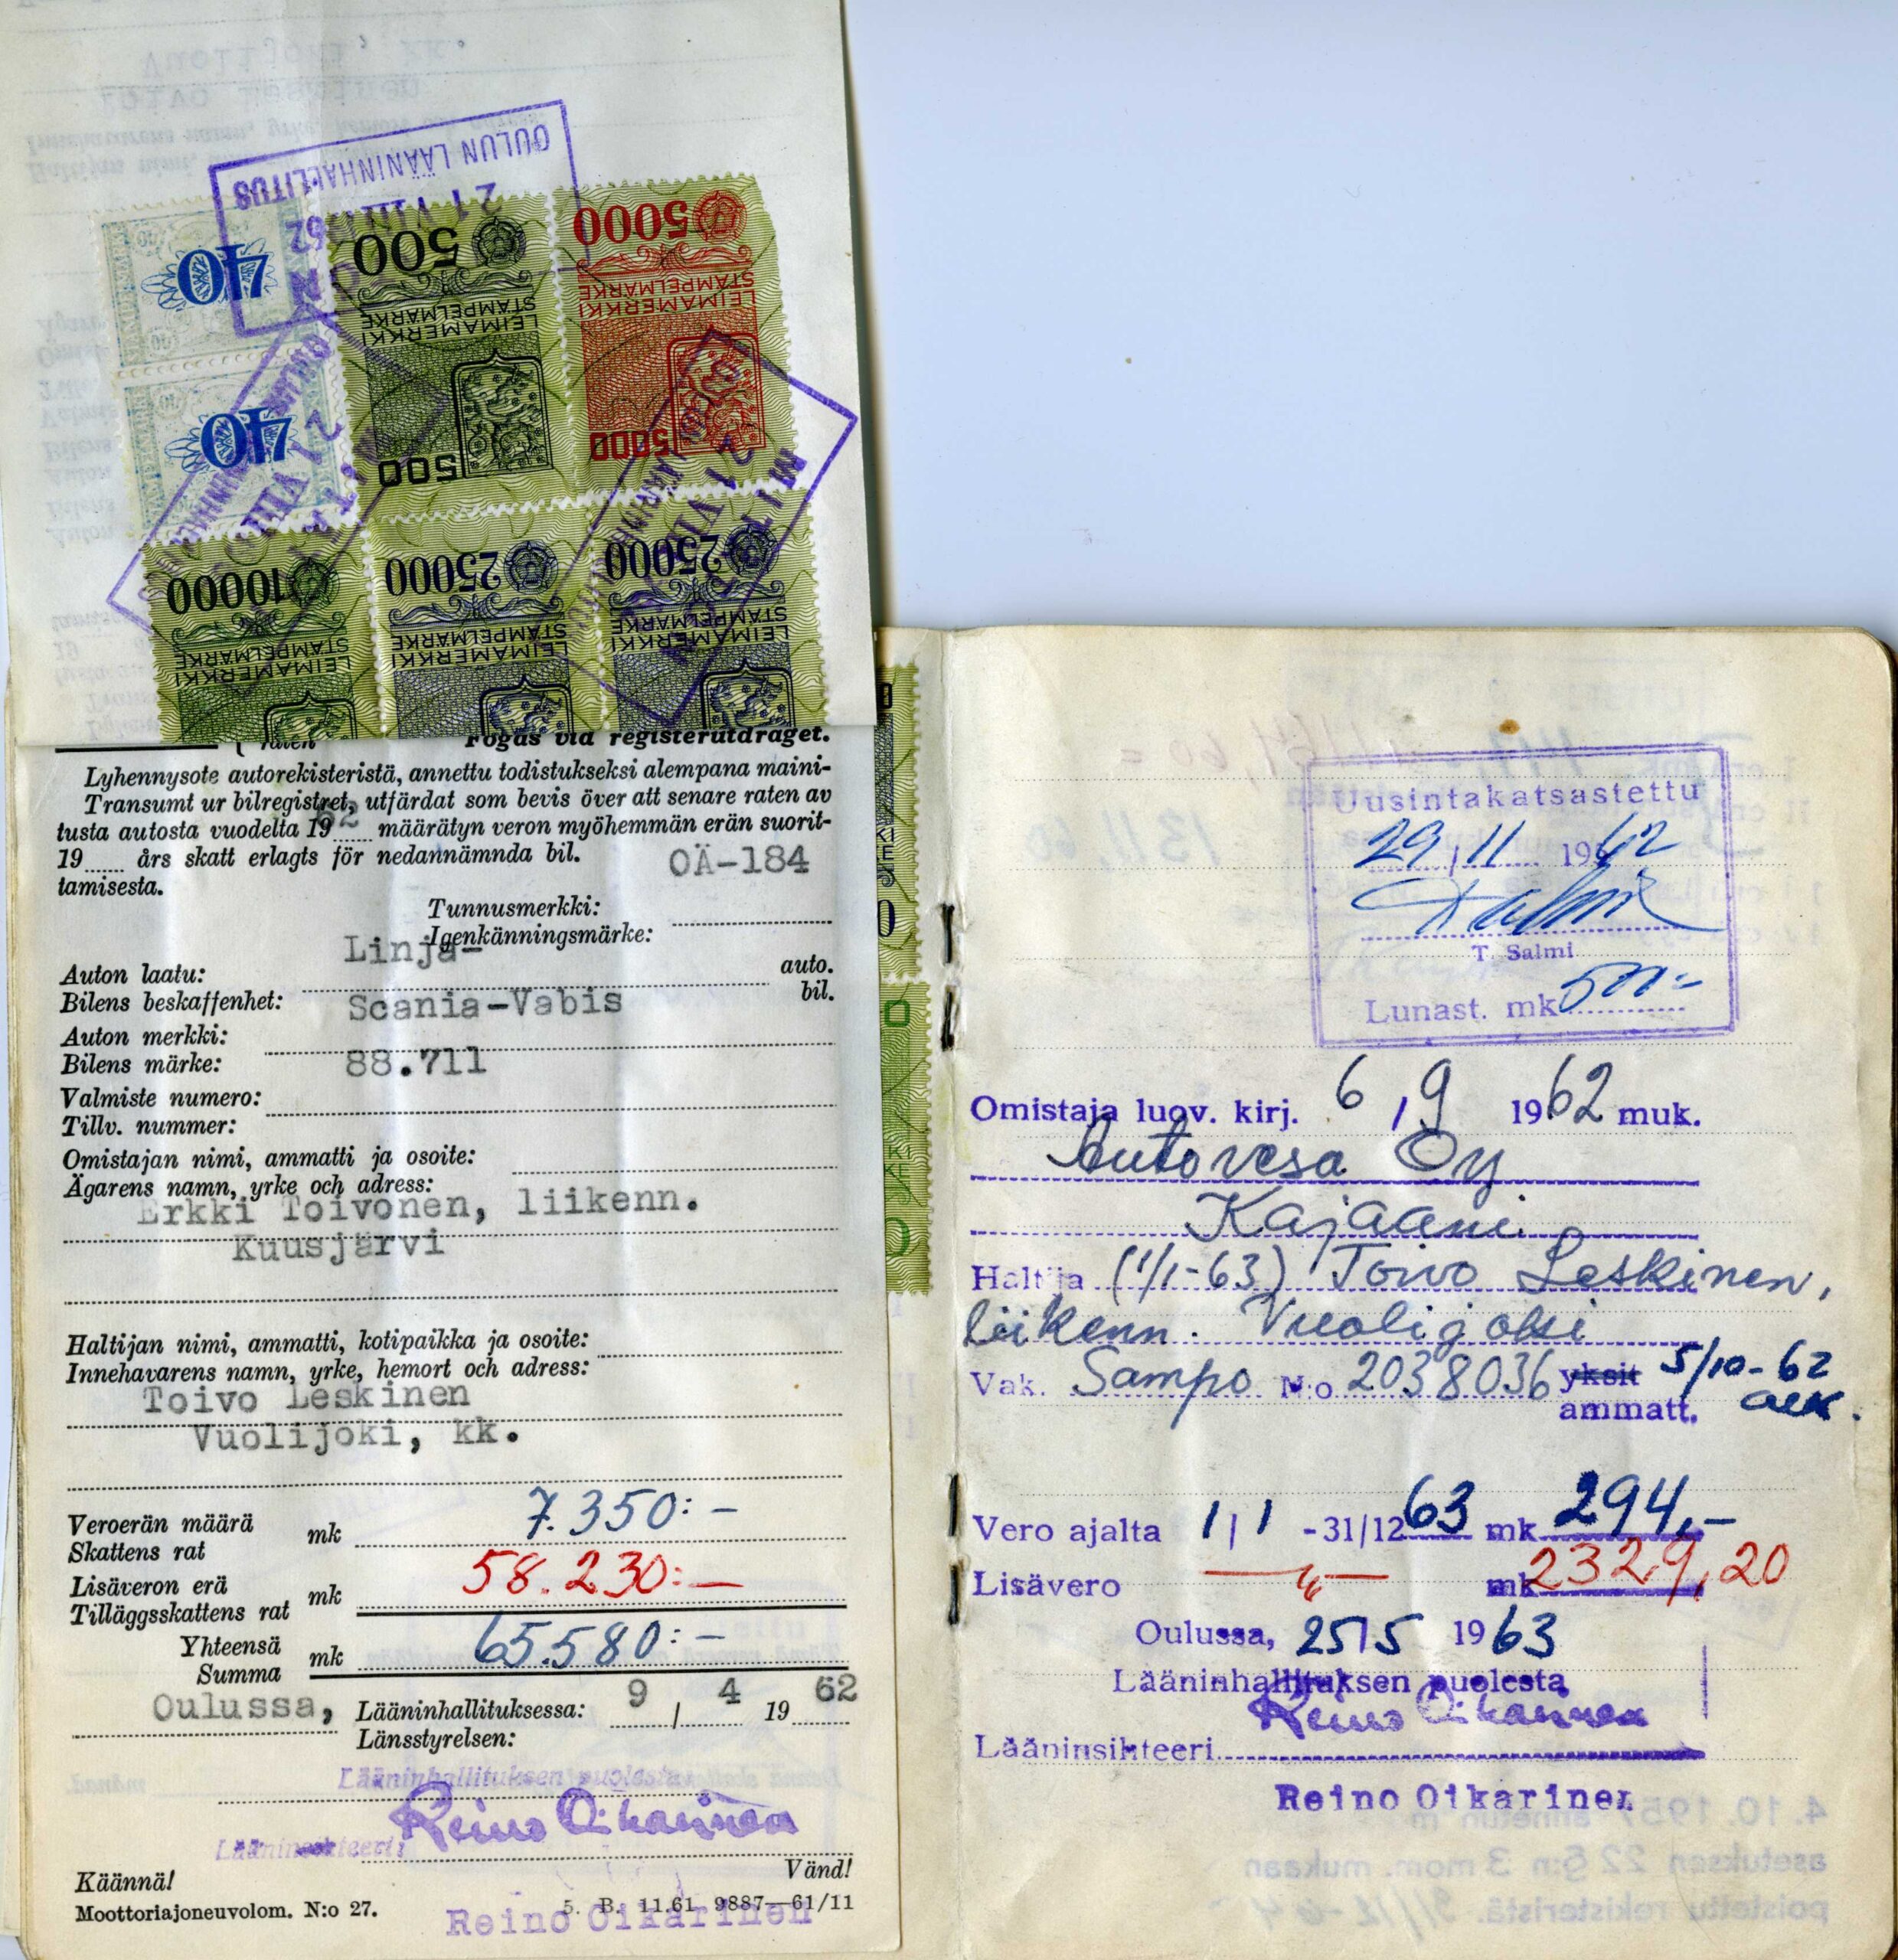 OULUN LÄÄNINHALLITUS
21 VIII 62
40
500
5000
LEIMAMERKKI
STÄMPELMARKE
LEIMAMERKKI
STÄMPELMARKE
40
500
5000
10000
25000
25000
LEIMAMERKKI
STÄMPELMARKE
LEIMAMERKKI
STÄMPELMARKE
LEIMAMERKKI
STÄMPELMARKE
Fogas via registerutdraget.
Lyhennysote autorekisteristä, annettu todistukseksi alempana maini-
Transumt ur bilregistret, utfärdat som bevis över att senare raten av
tusta autosta vuodelta 1962 määrätyn veron myöhemmän erän suorit-
19 års skatt erlagts för nedannämnda bil.
tamisesta.
OÄ-184
Tunnusmerkki:
Igenkänningsmärke:
Linja-
Auton laatu: auto.
Bilens beskaffenhet: bil.
Scania-Vabis
Auton merkki:
Bilens märke:
88.711
Valmiste numero:
Tillv. nummer:
Omistajan nimi, ammatti ja osoite:
Ägarens namn, yrke och adress:
Erkki Toivonen, liikenn.
Kuusjärvi
Haltijan nimi, ammatti, kotipaikka ja osoite:
Innehavarens namn, yrke, hemort och adress:
Toivo Leskinen
Vuolijoki, kk.
Veroerän määrä mk 7.350:-
Skattens rat
Lisäveron erä mk 58.230:-
Tilläggsskattens rat
Yhteensä mk 65.580:-
Summa
Oulussa, Lääninhallituksessa: 9 / 4 1962
Länsstyrelsen:
Lääninhallituksen puolesta
Reino Oikarinen
Lääninsihteeri
Käännä! Vänd!
Moottoriajoneuvolom. N:o 27. 5. B. 11.61 9887—61/11
Reino Oikarinen
Uusintakatsastettu
29/11 1962
Salmi
T. Salmi
Lunast. mk 500:-
Omistaja luov. kirj. 6/9 1962 muk.
Autovesa Oy
Kajaani
Haltija (1/1-63) Toivo Leskinen,
liikenn. Vuolijoki
Vak. Sampo N:o 2038036 yksit 5/10-62
ammatt.
Vero ajalta 1/1 -31/12 63 mk 294,-
Lisävero —"— mk 2329,20
Oulussa, 25/5 1963
Lääninhallituksen puolesta
Reino Oikarinen
Lääninsihteeri
Reino Oikarinen